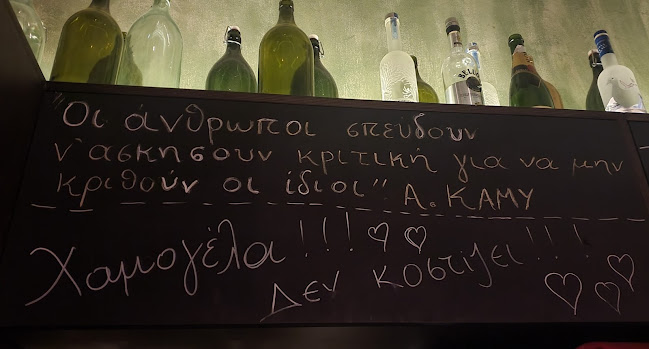 "Οι άνθρωποι σπεύδουν
ν' ασκησουν κριτική για να μην
κριθούν οι ίδιοι" Α. ΚΑΜΥ
Χαμογέλα!!!
Δεν κοστίζει!!!